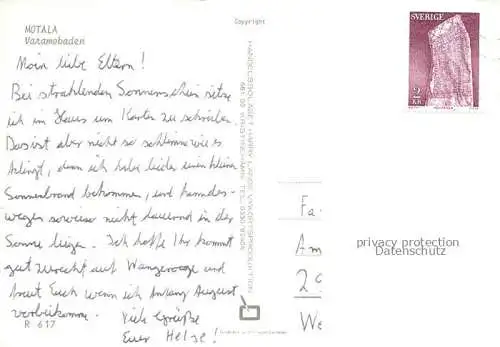 MOTALA
Varamobaden
Copyright
Moin liebe Eltern!
Bei strahlenden Sonnenschein sitze
ich im Haus um Karten zu schreiben.
Das ist aber nicht so schlimm wie es
klingt, denn ich habe leider einen kleinen
Sonnenbrand bekommen, und kann des-
wegen sowieso nicht dauernd in der
Sonne liegen. Ich hoffe Ihr kommt
gut zurecht auf Wangerooge und
freut Euch wenn ich Anfang August
vorbeikomme. Viele Grüße
Euer Helge!
R 617
SVERIGE
2
KR
Fa
Am
29
We
privacy protection
Datenschutz